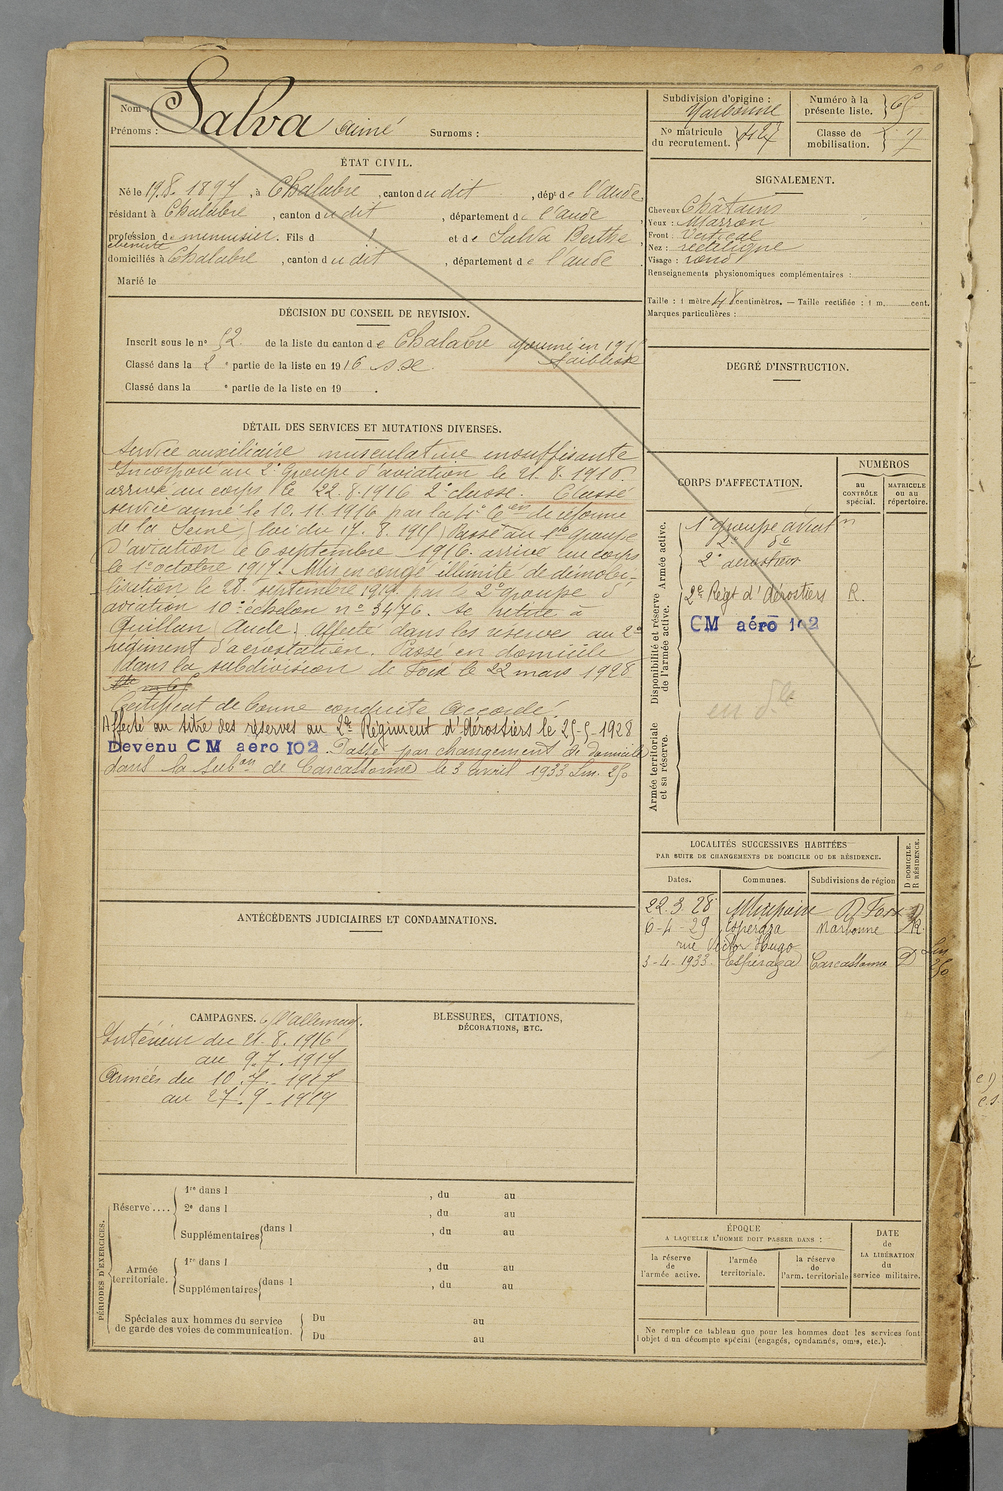 Nom : Salva
Prénoms : Aimé Surnoms :
Subdivision d'origine : Narbonne
Numéro à la présente liste.
No matricule du recrutement.
Classe de mobilisation. 17
ÉTAT CIVIL.
Né le 19.8.1897, à Chalabre, canton du dit, dépt de l'Aude,
résidant à Chalabre, canton du dit, département de l'Aude,
profession de menuisier. Fils d et de Salva Berthe,
ébéniste
domiciliés à Chalabre, canton du dit, département de l'Aude
Marié le
SIGNALEMENT.
Cheveux Châtains
Yeux : Marron
Front : Vertical
Nez : rectiligne
Visage : rond
Renseignements physionomiques complémentaires :
Taille : 1 mètre 48 centimètres. — Taille rectifiée : 1 m. cent.
Marques particulières :
DÉCISION DU CONSEIL DE REVISION.
Inscrit sous le no 52 de la liste du canton de Chalabre ajourné en 191
faiblesse
Classé dans la 2e partie de la liste en 1916 s.x.
Classé dans la e partie de la liste en 19 .
DEGRÉ D'INSTRUCTION.
DÉTAIL DES SERVICES ET MUTATIONS DIVERSES.
Service auxiliaire musculature insuffisante
Incorporé au 2e Groupe d'aviation le 21.8.1916.
arrivé au corps le 22.8.1916 2e classe. Classé
service armé le 10.11.1916 par la Con de réforme
de la Seine (loi du Passé au 1er groupe
d'aviation le 6 septembre arrivé au corps
le 1er octobre 1917. Mis en congé illimité de démobi-
lisation le 28 septembre 1919 par le 2e groupe d'
aviation 10e échelon no 3476. Se retire à
Quillan (Aude). Affecté dans les réserves au 2e
régiment d'aérostation. Passé en domicile
dans la subdivision de Foix le 22 mars 1928
Certificat de bonne conduite Accordé.
Affecté au titre des réserves au 2e Régiment d'Aérostiers le 25-5-1928
Devenu CM aero 102. Passé par changement de domicile
dans la Subon de Carcassonne le 3 avril 1933
CORPS D'AFFECTATION.
NUMÉROS
au CONTRÔLE spécial.
MATRICULE ou au répertoire.
Armée active.
1er groupe aviatn
2e do
2e aérostiers
Disponibilité et réserve de l'armée active.
2e Régt d'Aérostiers R.
CM aéro 102
en dle
Armée territoriale et sa réserve.
LOCALITÉS SUCCESSIVES HABITÉES
PAR SUITE DE CHANGEMENTS DE DOMICILE OU DE RÉSIDENCE.
Dates. Communes. Subdivisions de région D DOMICILE. R RÉSIDENCE.
22.3.28 Mirepoix Foix D
6-4-29 Espéraza Narbonne R
rue Victor Hugo
3-4-1933 Espéraza Carcassonne D
ANTÉCÉDENTS JUDICIAIRES ET CONDAMNATIONS.
CAMPAGNES. c/ l'allemagne.
Intérieur du 21.8.1916
au 9.7.1917
Armées du 10.7.1917
au 27.9.1919
BLESSURES, CITATIONS, DÉCORATIONS, ETC.
PÉRIODES D'EXERCICES.
Réserve....
1re dans l , du au
2e dans l , du au
Supplémentaires dans l , du au
Armée territoriale.
1re dans l , du au
Supplémentaires dans l , du au
Spéciales aux hommes du service de garde des voies de communication.
Du au
Du au
ÉPOQUE
A LAQUELLE L'HOMME DOIT PASSER DANS :
la réserve de l'armée active.
l'armée territoriale.
la réserve de l'arm. territoriale
DATE de LA LIBÉRATION du service militaire.
Ne remplir ce tableau que pour les hommes dont les services font
l'objet d'un décompte spécial (engagés, condamnés, omis, etc.).